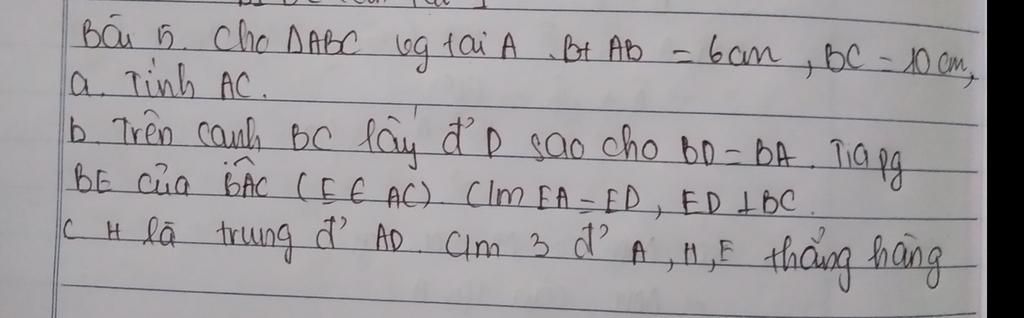 Bài 5. Cho ΔABC vg tại A. Bt AB = 6cm, BC = 10 cm,
a. Tính AC.
b. Trên cạnh BC lấy đ' D sao cho BD = BA. Tia pg
BE của BÂC (E ∈ AC) C/m EA = ED, ED ⊥ BC.
C H là trung đ' AD. C/m 3 đ' A, H, E thẳng hàng